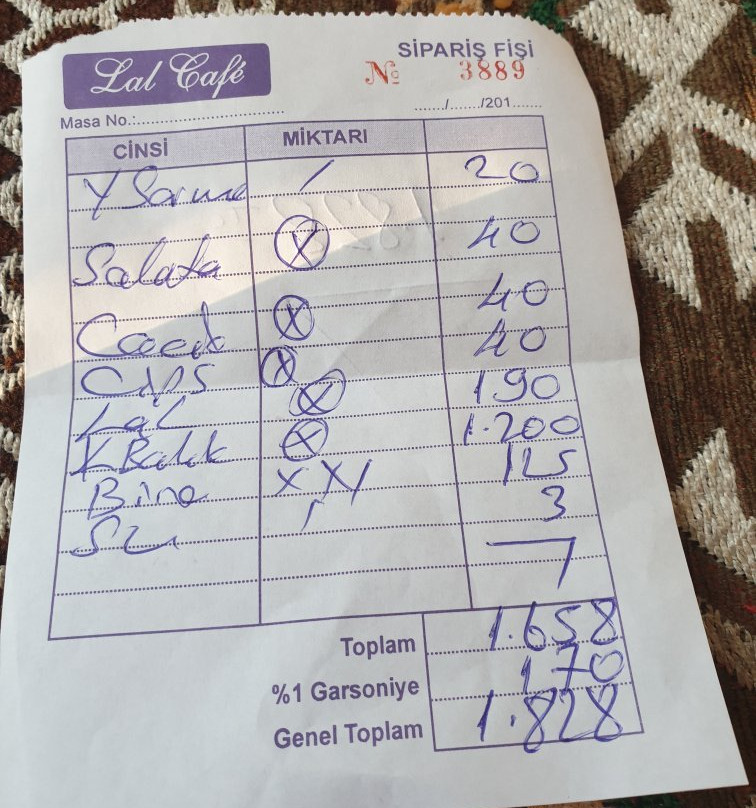 Lal Café
SİPARİŞ FİŞİ
№ 3889
Masa No.:........................
....../......./201......
CİNSİ MİKTARI
Y Sarma / 20
Salata X 40
Cacık X 40
Cips X 40
Lal X 190
K Balık X 1.200
Bira X X / 125
Su / 3
Toplam 1.658
%1 Garsoniye 170
Genel Toplam 1.828